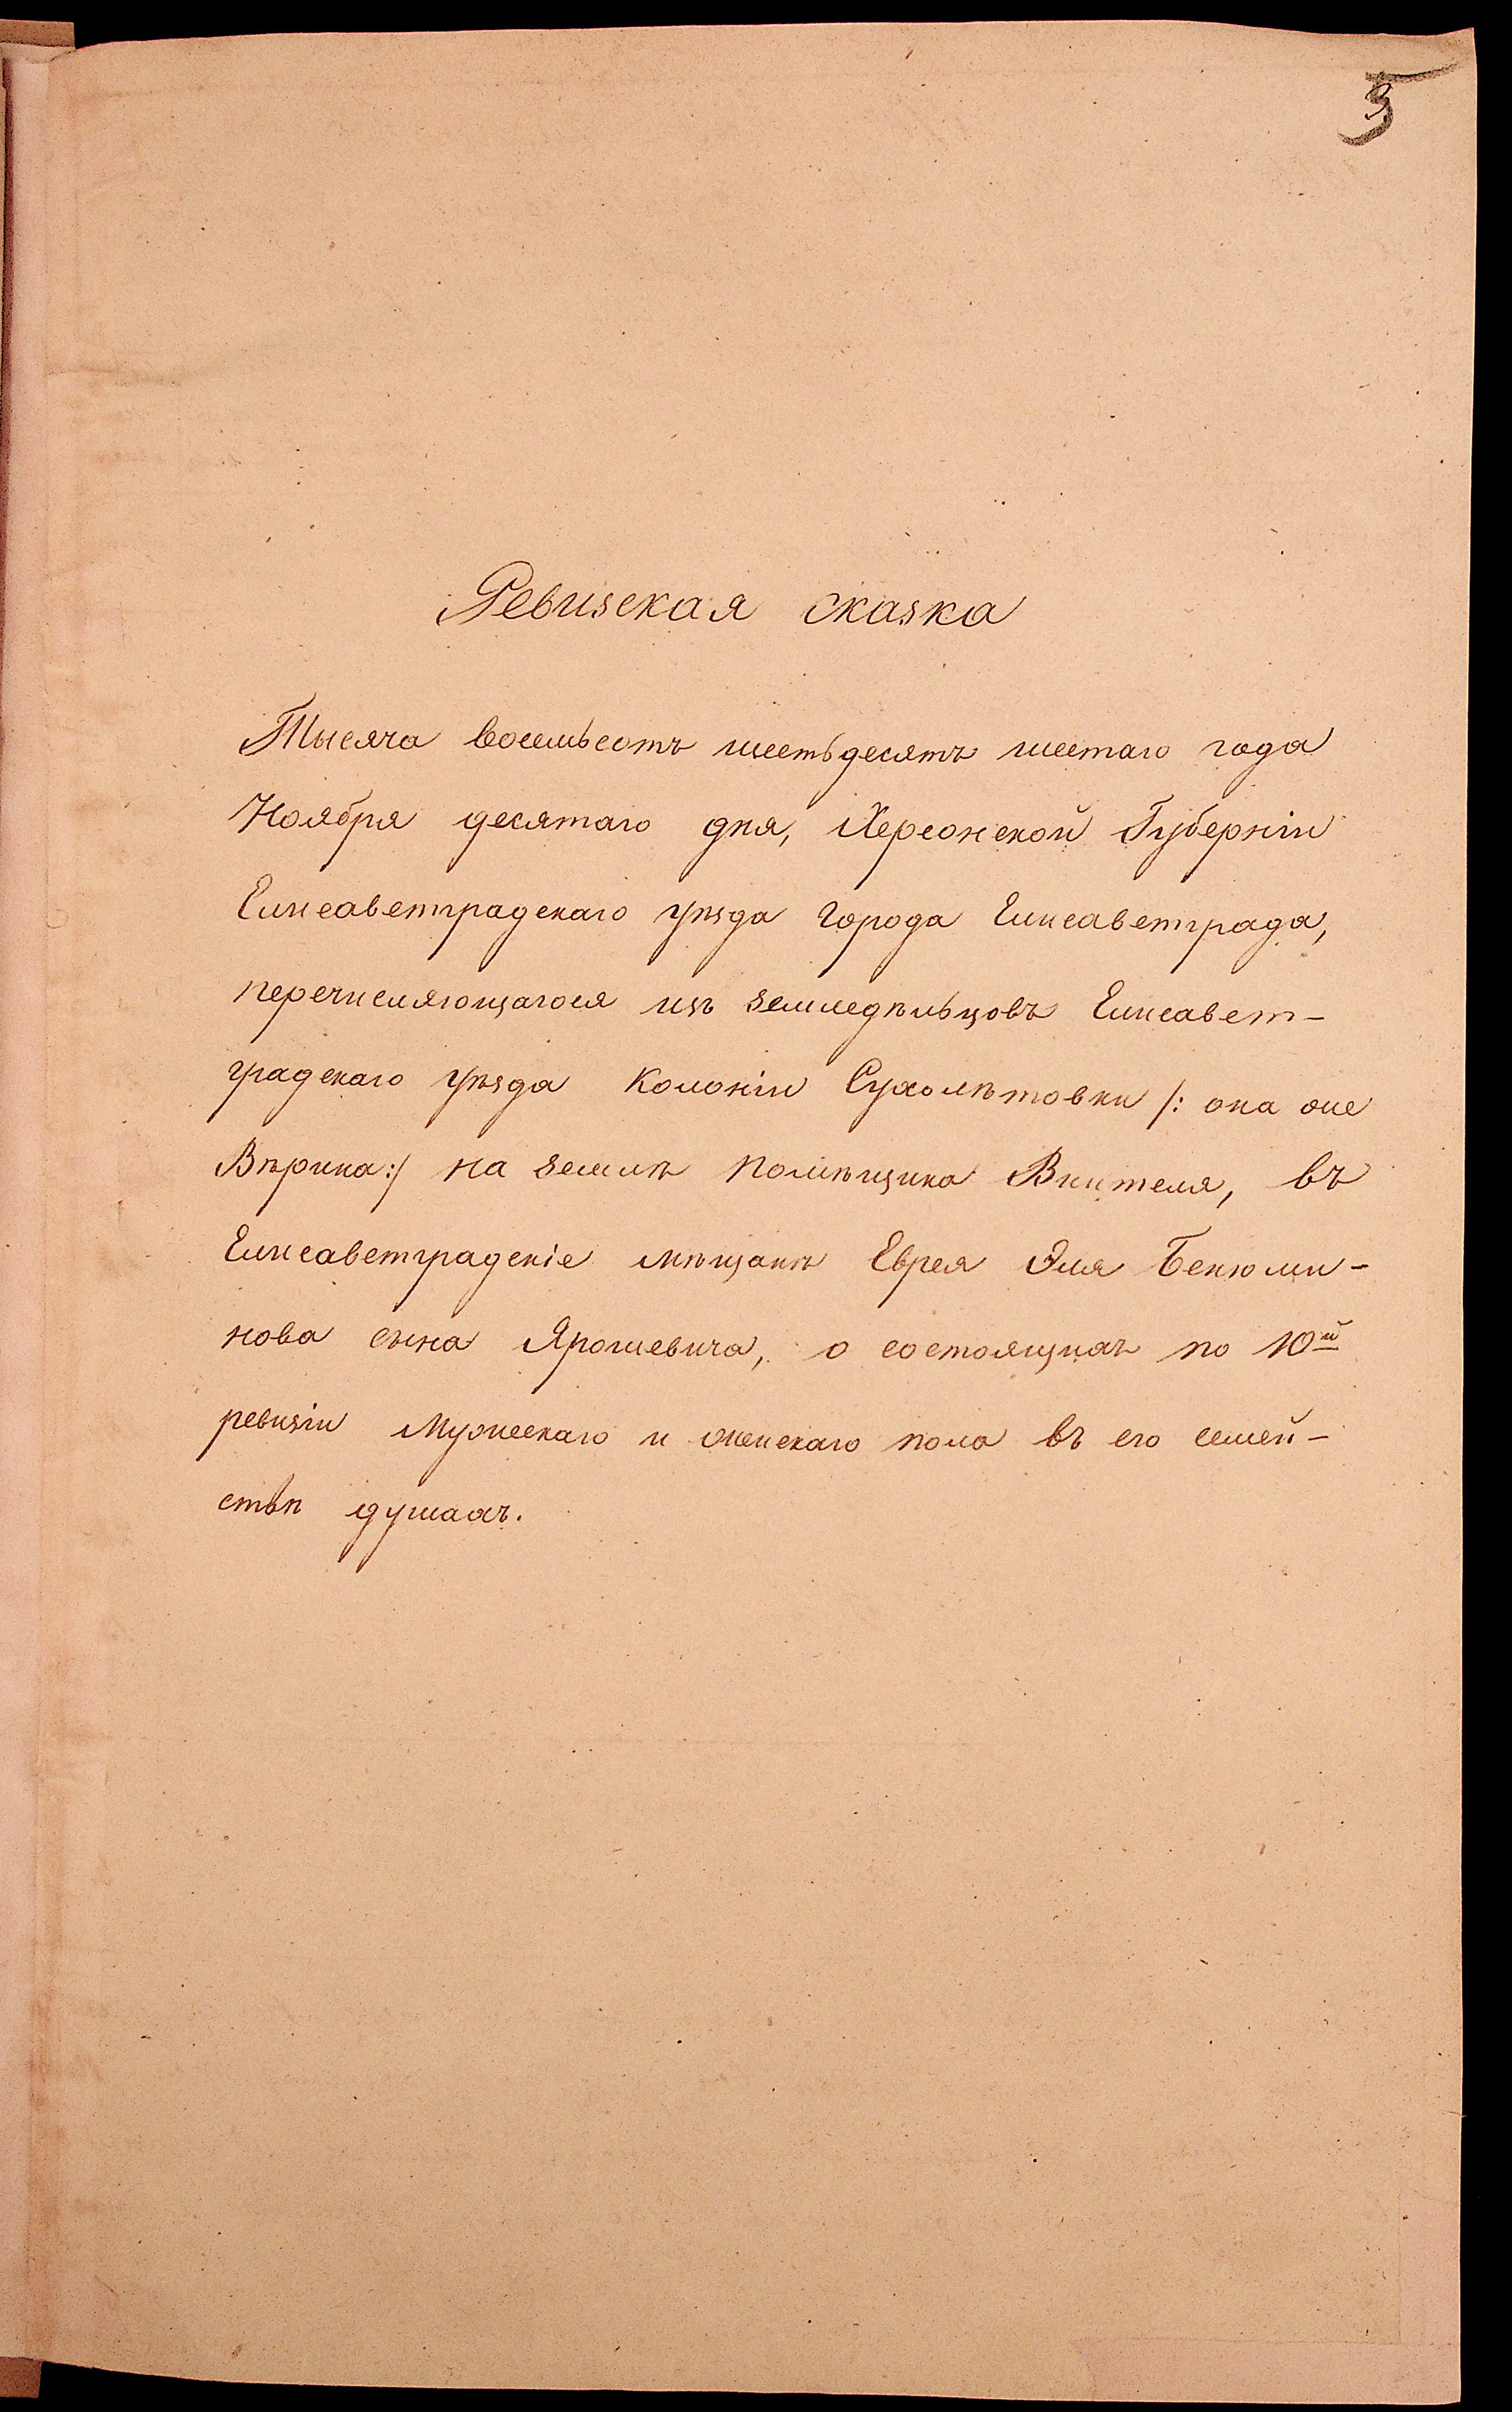 5
Ревизская сказка
Тысяча восемьсотъ шестьдесятъ шестаго года
Ноября десятаго дня, Херсонской Губерніи
Елисаветградскаго уѣзда города Елисаветграда,
перечисляющагося изъ земледѣльцовъ Елисавет-
градскаго уѣзда Колоніи Сухолѣтовки /: она же
Вѣрина :/ на землѣ помѣщика Вентеля, въ
Елисаветградскіе мѣщанѣ Еврея Эля Бенюми-
нова сына Ярошевича, о состоящихъ по 10й
ревизіи Мужескаго и женскаго пола въ его семей-
ствѣ душахъ.